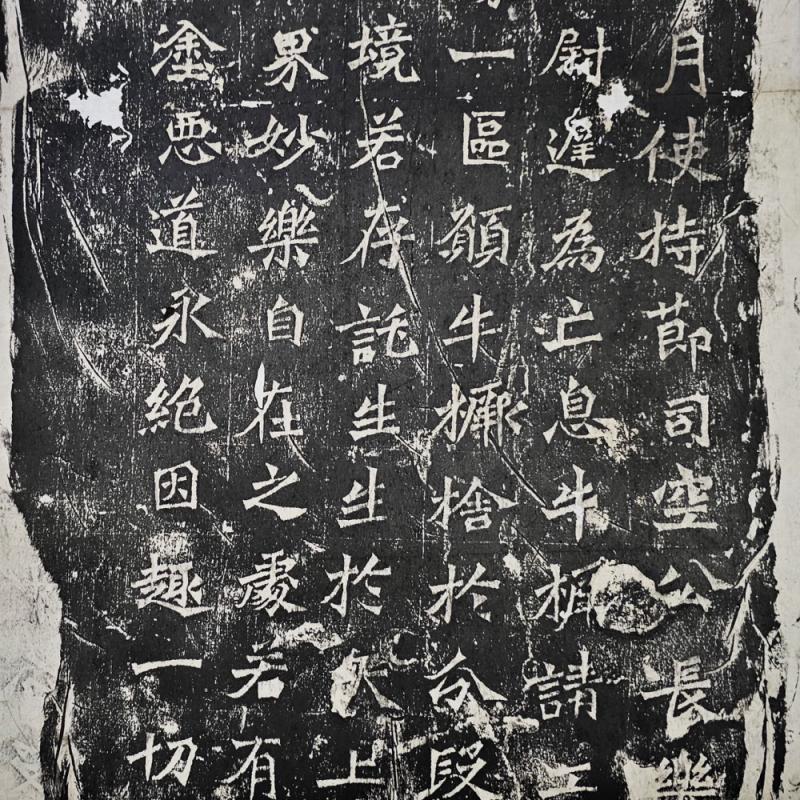 月使持節司空公長樂
尉遲為亡息牛橛請工
一區願牛橛捨於分段
境若存託生生於天上
界妙樂自在之處若有
塗惡道永絕因趣一切